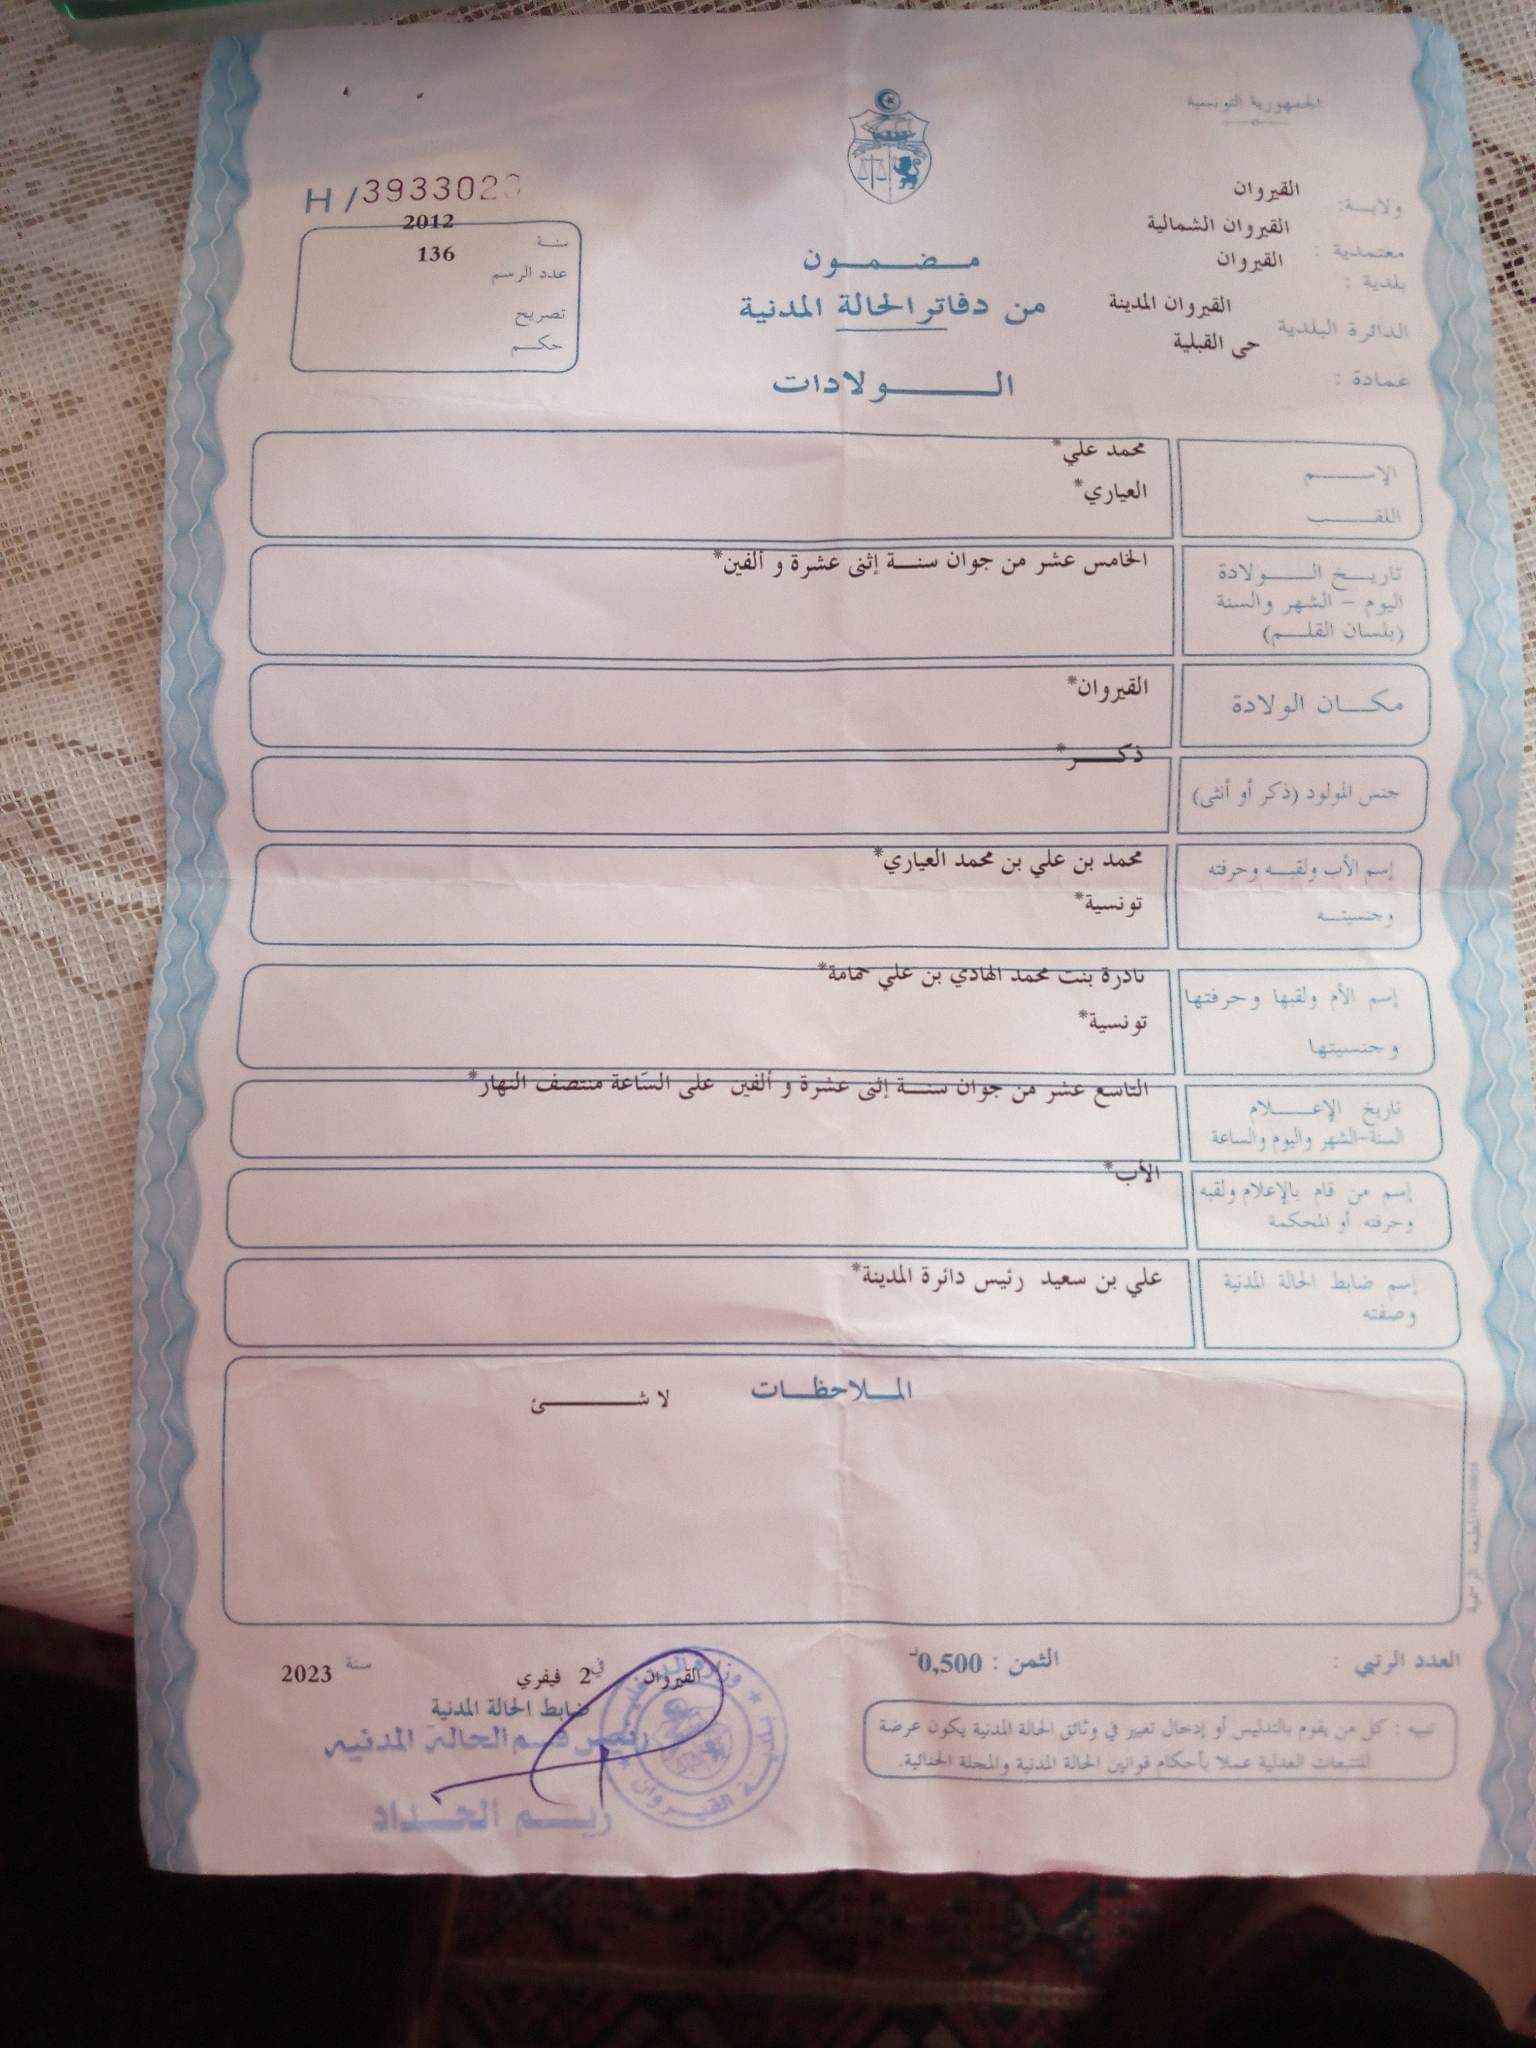 الجمهورية التونسية
ولاية: القيروان
معتمدية : القيروان الشمالية
بلدية : القيروان
الدائرة البلدية القيروان المدينة
عمادة : حى القبلية
H / 393302
سنة 2012
عدد الرسم 136
تصريح
حكم
مضمون
من دفاتر الحالة المدنية
الولادات
الإسم محمد علي*
اللقب العياري*
تاريخ الولادة الخامس عشر من جوان سنة إثنى عشرة و ألفين*
اليوم - الشهر والسنة
(بلسان القلم)
مكان الولادة القيروان*
جنس المولود (ذكر أو أنثى) ذكر*
إسم الأب ولقبه وحرفته محمد بن علي بن محمد العياري*
وجنسيته تونسية*
إسم الأم ولقبها وحرفتها نادرة بنت محمد الهادي بن علي حمامة*
وجنسيتها تونسية*
تاريخ الإعلام التاسع عشر من جوان سنة إثنى عشرة و ألفين على السّاعة منتصف النهار*
السنة-الشهر واليوم والساعة
إسم من قام بالإعلام ولقبه الأب*
وحرفته أو المحكمة
إسم ضابط الحالة المدنية علي بن سعيد رئيس دائرة المدينة*
وصفته
الملاحظات
لا شئ
المطبعة الرسمية
العدد الرتبي :
الثمن : 0,500د
القيروان في 2 فيفري سنة 2023
ضابط الحالة المدنية
رئيس قسم الحالة المدنية
ريم الحداد
تنبيه : كل من يقوم بالتدليس أو إدخال تغيير في وثائق الحالة المدنية يكون عرضة
للتتبعات العدلية عملا بأحكام قوانين الحالة المدنية والمجلة الجنائية.